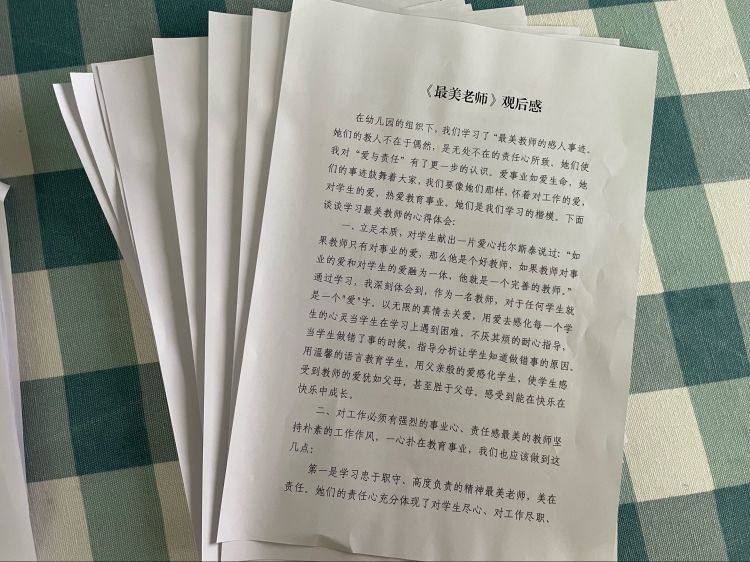 《最美老师》观后感
在幼儿园的组织下，我们学习了“最美教师的感人事迹。
她们的教人不在于偶然，是无处不在的责任心所致，她们使
我对“爱与责任”有了更一步的认识。爱事业如爱生命，她
们的事迹鼓舞着大家，我们要像她们那样，怀着对工作的爱，
对学生的爱，热爱教育事业。她们是我们学习的楷模。下面
谈谈学习最美教师的心得体会：
一、立足本质，对学生献出一片爱心托尔斯泰说过：“如
果教师只有对事业的爱，那么他是个好教师，如果教师对事
业的爱和对学生的爱融为一体，他就是一个完善的教师。”
通过学习，我深刻体会到，作为一名教师，对于任何学生就
是一个"爱"字。以无限的真情去关爱，用爱去感化每一个学
生的心灵当学生在学习上遇到困难，不厌其烦的耐心指导，
当学生做错了事的时候，指导分析让学生知道做错事的原因。
用温馨的语言教育学生，用父亲般的爱感化学生，使学生感
受到教师的爱犹如父母，甚至胜于父母，感受到能在快乐在
快乐中成长。
二、对工作必须有强烈的事业心、责任感最美的教师坚
持朴素的工作作风，一心扑在教育事业，我们也应该做到这
几点：
第一是学习忠于职守、高度负责的精神最美老师，美在
责任。她们的责任心充分体现了对学生尽心、对工作尽职、